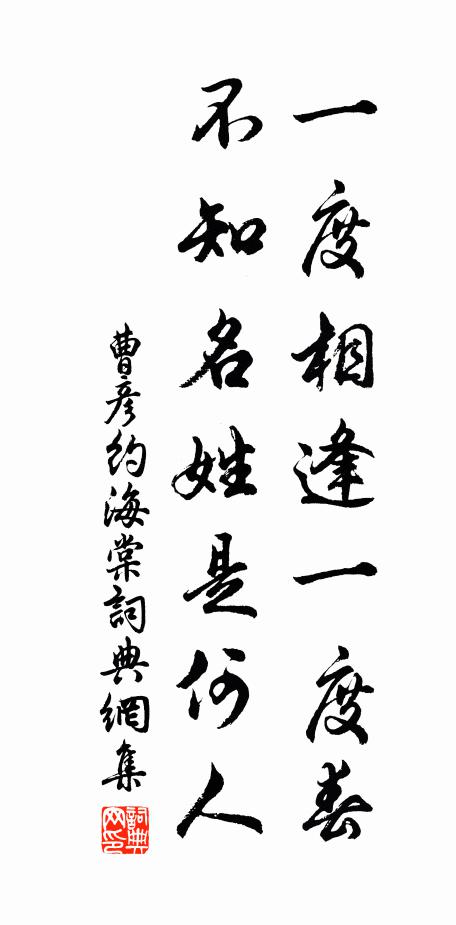 一度相逢一度春
不知名姓是何人
曹彦約海棠詞典網集
詞典網印